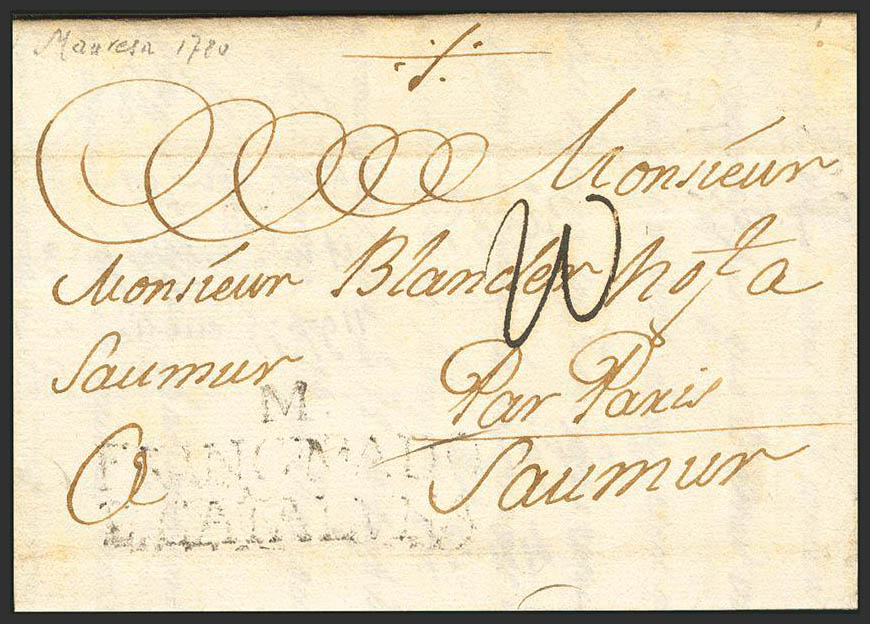 Manresa 1780
Monsieur
Monsieur Blancler not a
Saumur
Par Paris
a Saumur
M.
PRINCIPADO
CATALUÑA